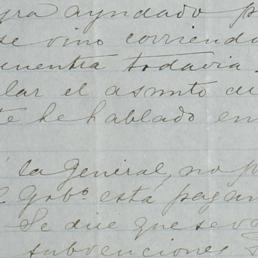 ayudado p
se vino corriendo
cuentra todavia
lar el asunto di
te he hablado en
la General, no p
Gobº está pagan
Se dice que se va
subvenciones